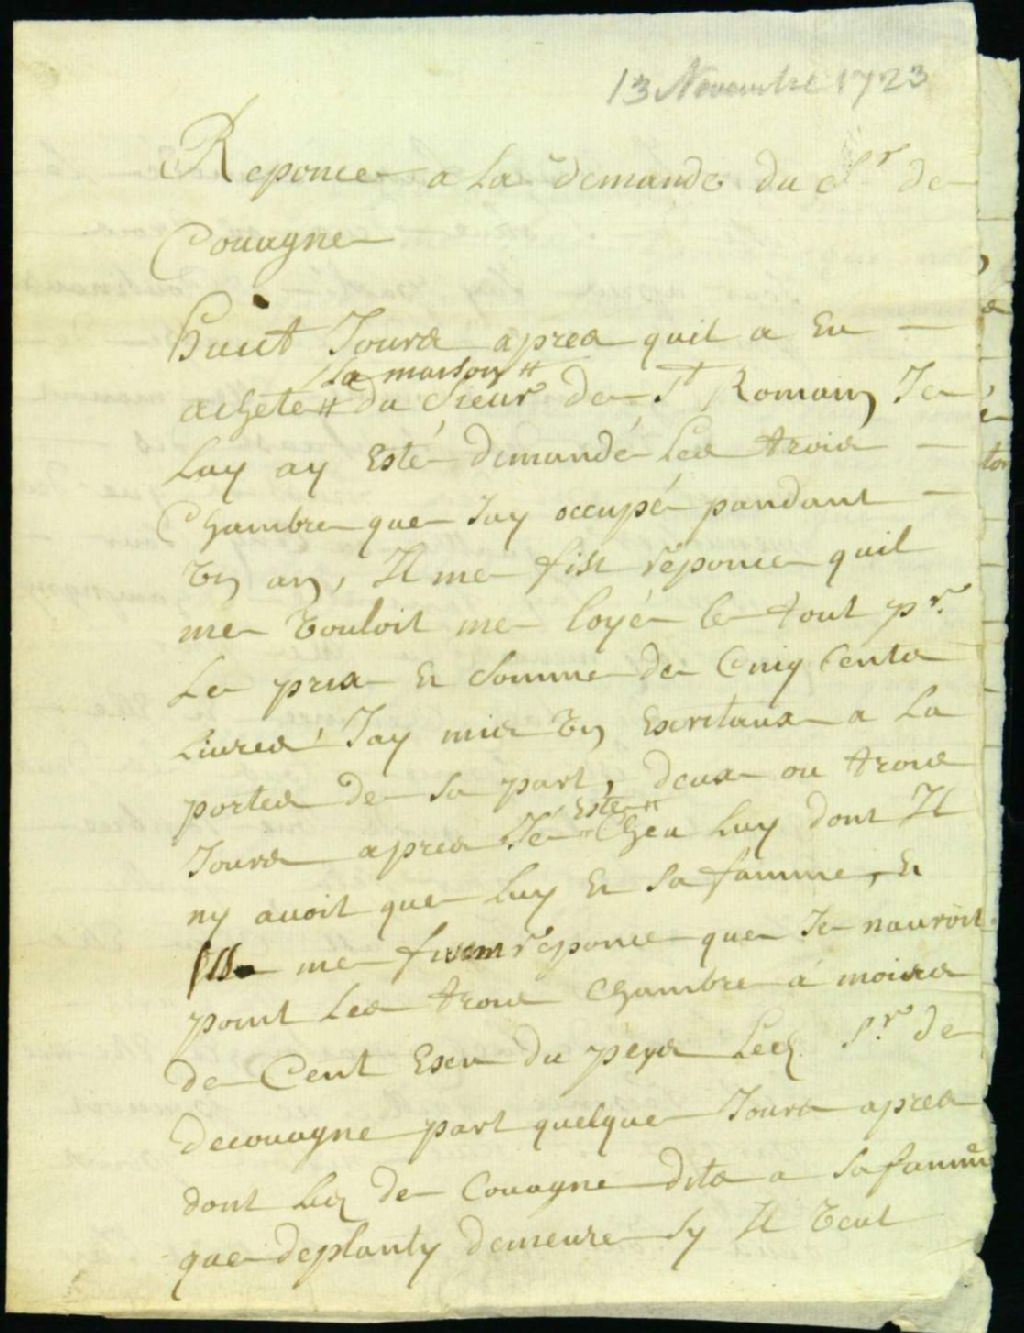 13 Novembre 1723
Reponce a La demande du Sr. de
Couagne
Huict Jours apres quil a Eu
la maison //
achete // du Sieur de St Romain Je
Luy ay Esté demandé Les trois
Chambre que Jay occupé pandant
Un an, Il me fist réponce quil
me Vouloit me loyé le tout pr.
Le prix Et Somme de Cinq Cents
Livres, Jay mis Un Escritaux a La
portes de Sa part, deux ou trois
Esté //
Jours apres Je // Chea Luy dont Il
ny avoit que Luy Et Sa famme, Et
Ills me firent réponce que Je nauroit
point Les trois Chambre á moins
de Cent Escu du peys Led. Sr. de
decouagne part quelque Jours apres
dont Led de Couagne dits a Sa famme
que deplanty demeure Sy Il Veut